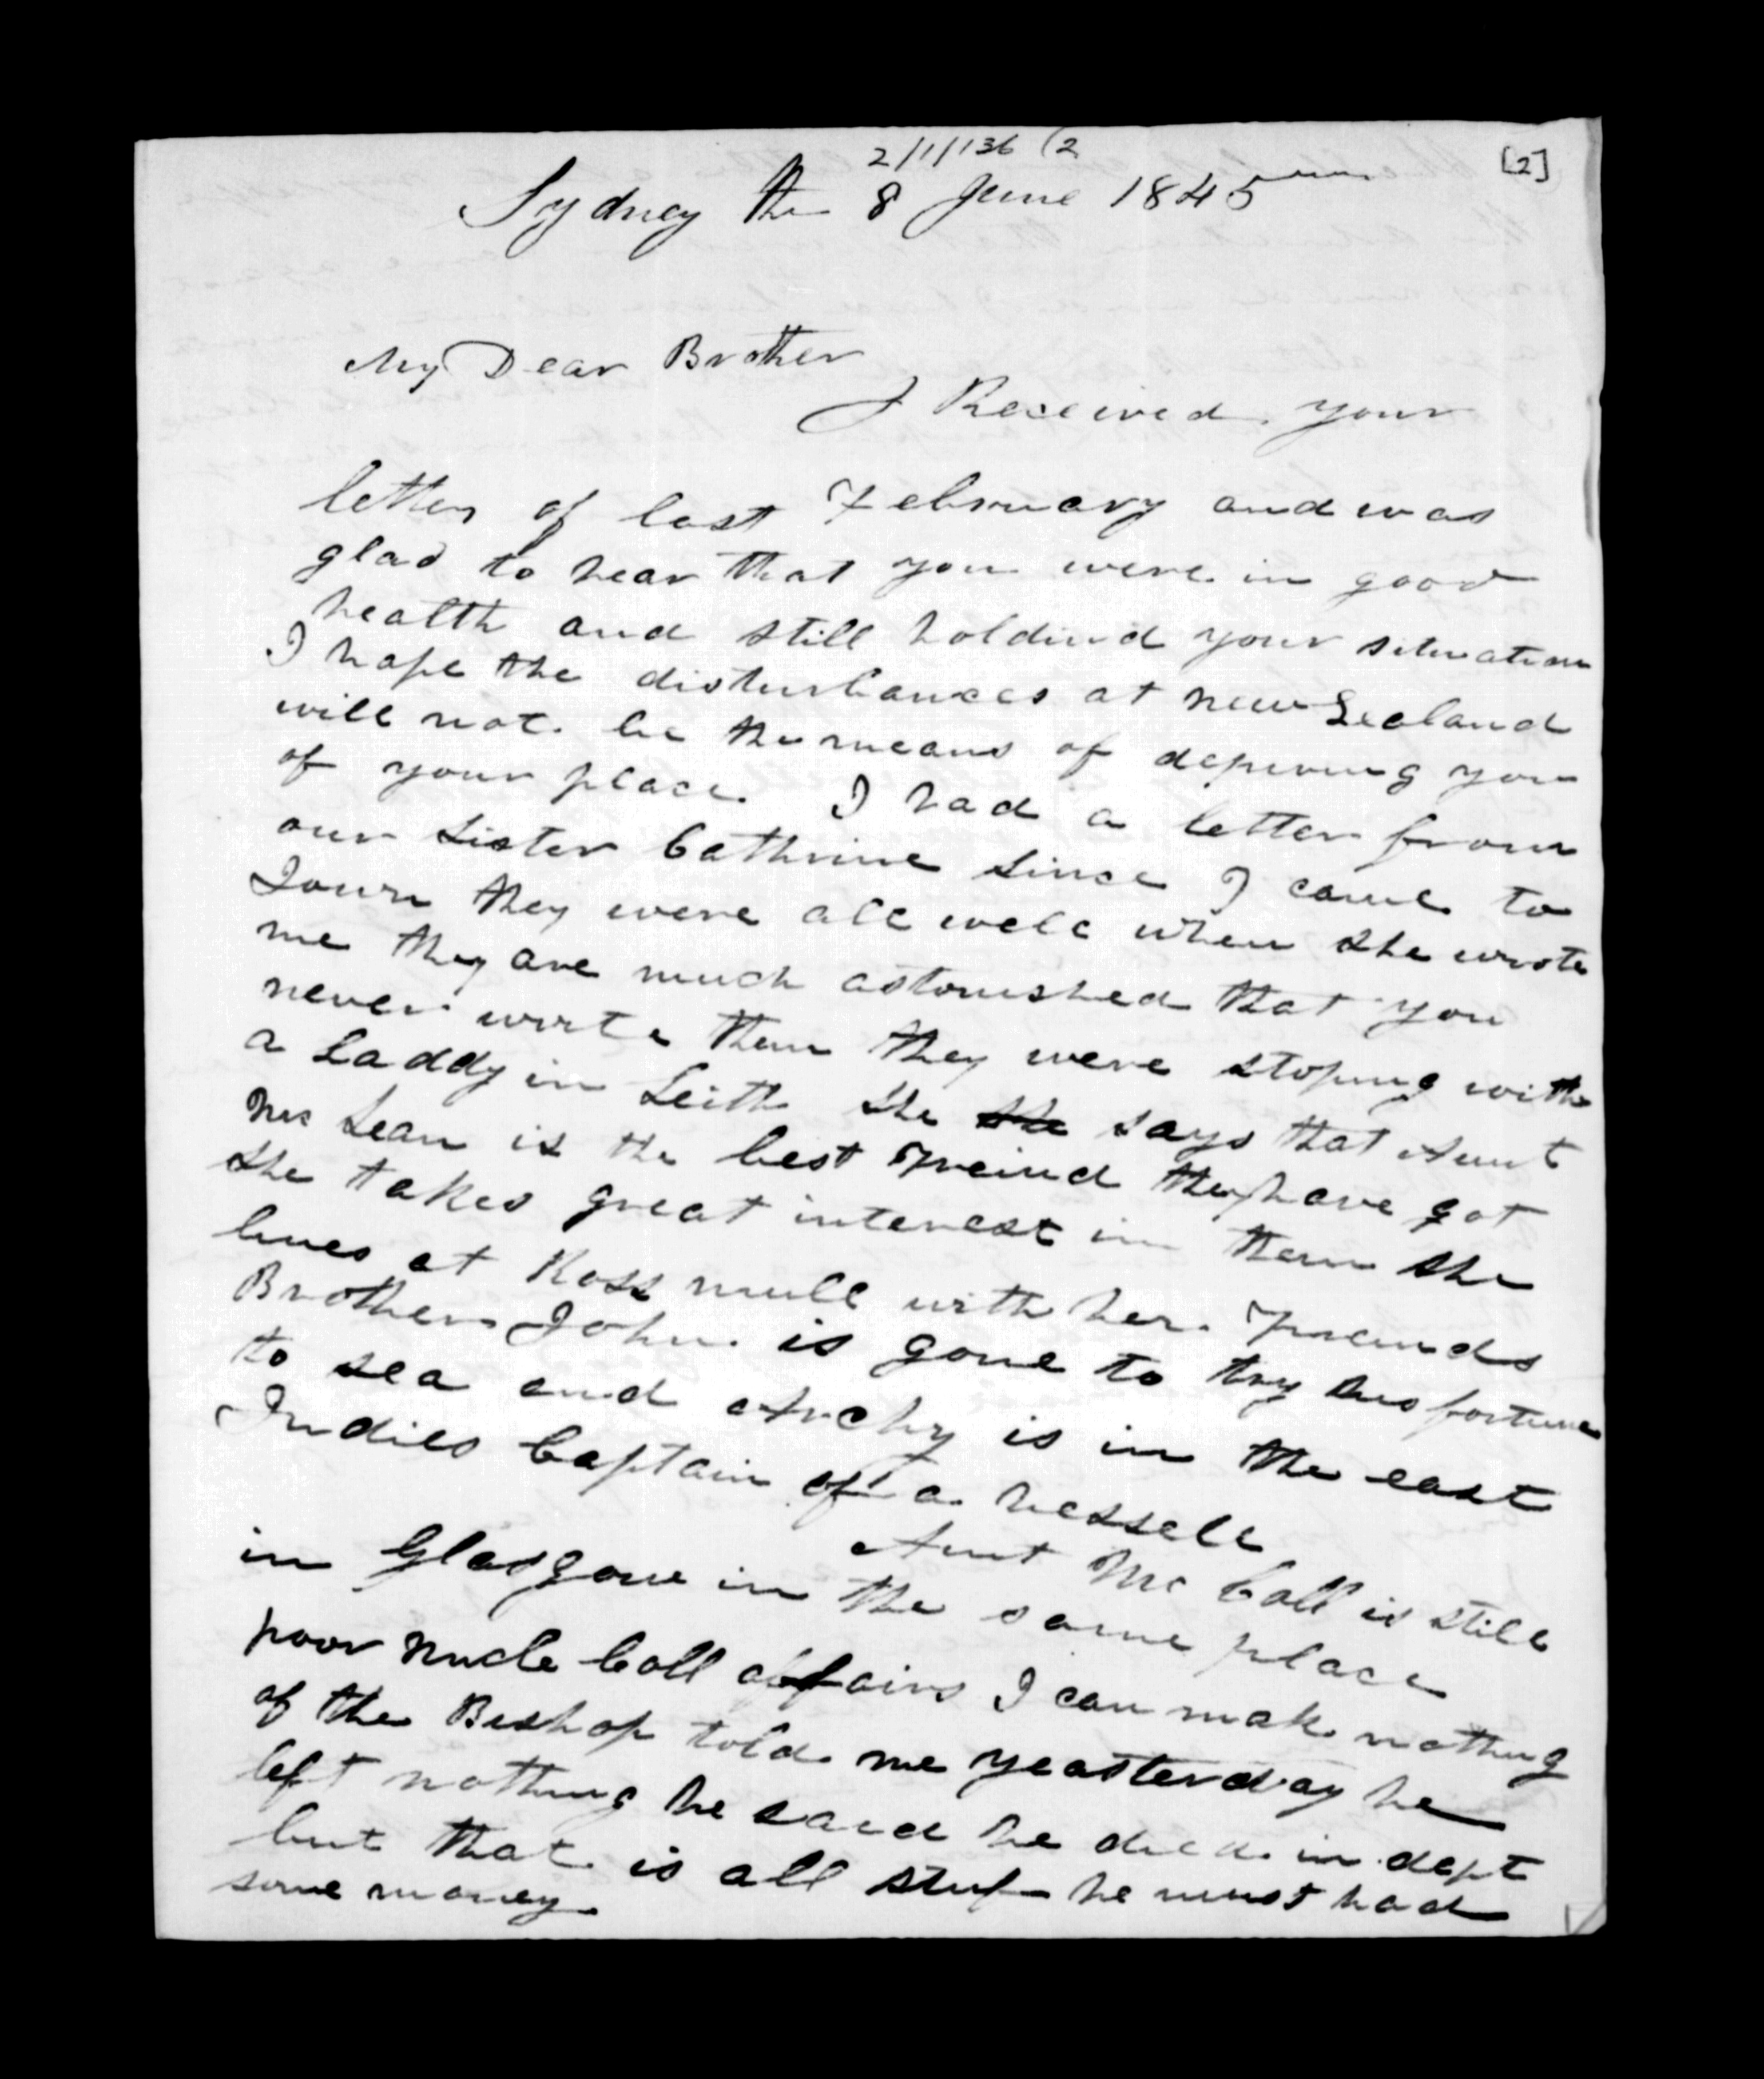 2/1/136 (2
[2]
Sydney the 8 June 1845
My Dear Brother
I Received your
letter of last February and was
glad to hear that you were in good
health and still holdind your situation
I hope the disturbances at new Zealand
will not be the means of depriving you
of your place. I had a letter from
our Sister Cathrine since I came to
Town they were all well when she wrote
me they are much astonished that you
never wrote them they were stoping with
a Laddy in Leith she she says that Aunt
Mc Lean is the best Freind they have got
she takes great interest in them she
lives at Ross mull with her Freinds
Brother John is gone to try his fortune
to sea and Archy is in the east
Indies Captain of a vessell
Aunt Mc Coll is still
in Glasgow in the same place
poor Uncle Coll affairs I can make nothing
of the Bishop told me yeasterday he
left nothing he said he died in dept
but that is all stuf he must had
some money